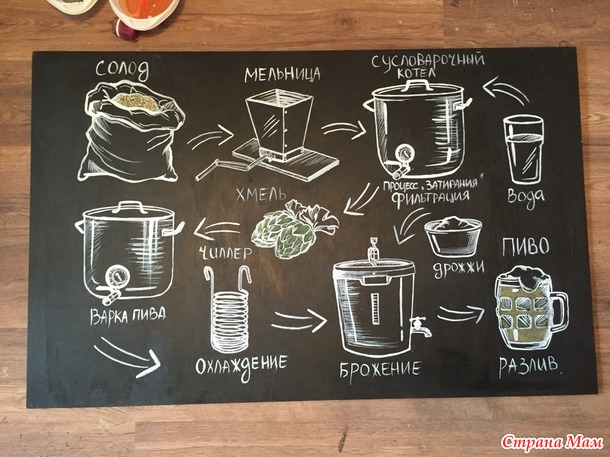 СОЛОД
МЕЛЬНИЦА
СУСЛОВАРОЧНЫЙ
КОТЕЛ
ВОДА
ПРОЦЕСС „ЗАТИРАНИЯ"
ФИЛЬТРАЦИЯ
ХМЕЛЬ
ВАРКА ПИВА
ЧИЛЛЕР
ОХЛАЖДЕНИЕ
ДРОЖЖИ
БРОЖЕНИЕ
ПИВО
РАЗЛИВ.
Страна Мам